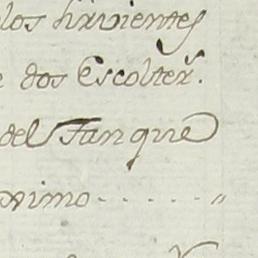 los sirvientes
e dos Escolter.
del Tanque
nimo - - - - - - "